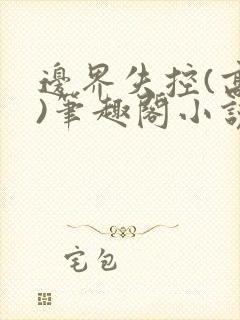 邊界失控(高
)筆趣閣小說
宅包